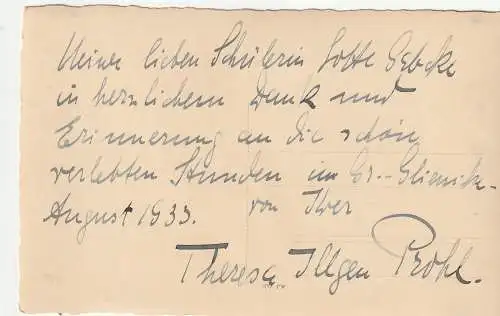 Meiner lieben Schülerin Lotte Gebcke
in herzlichem Dank und
Erinnerung an die schön
verlebten Stunden in Gr.-Glienicke
August 1933. von Ihrer
Theresa Illgen Prohl.